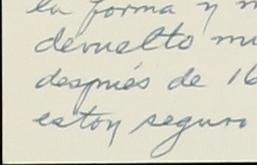 la forma y
devuelto
después de 16
estoy seguro